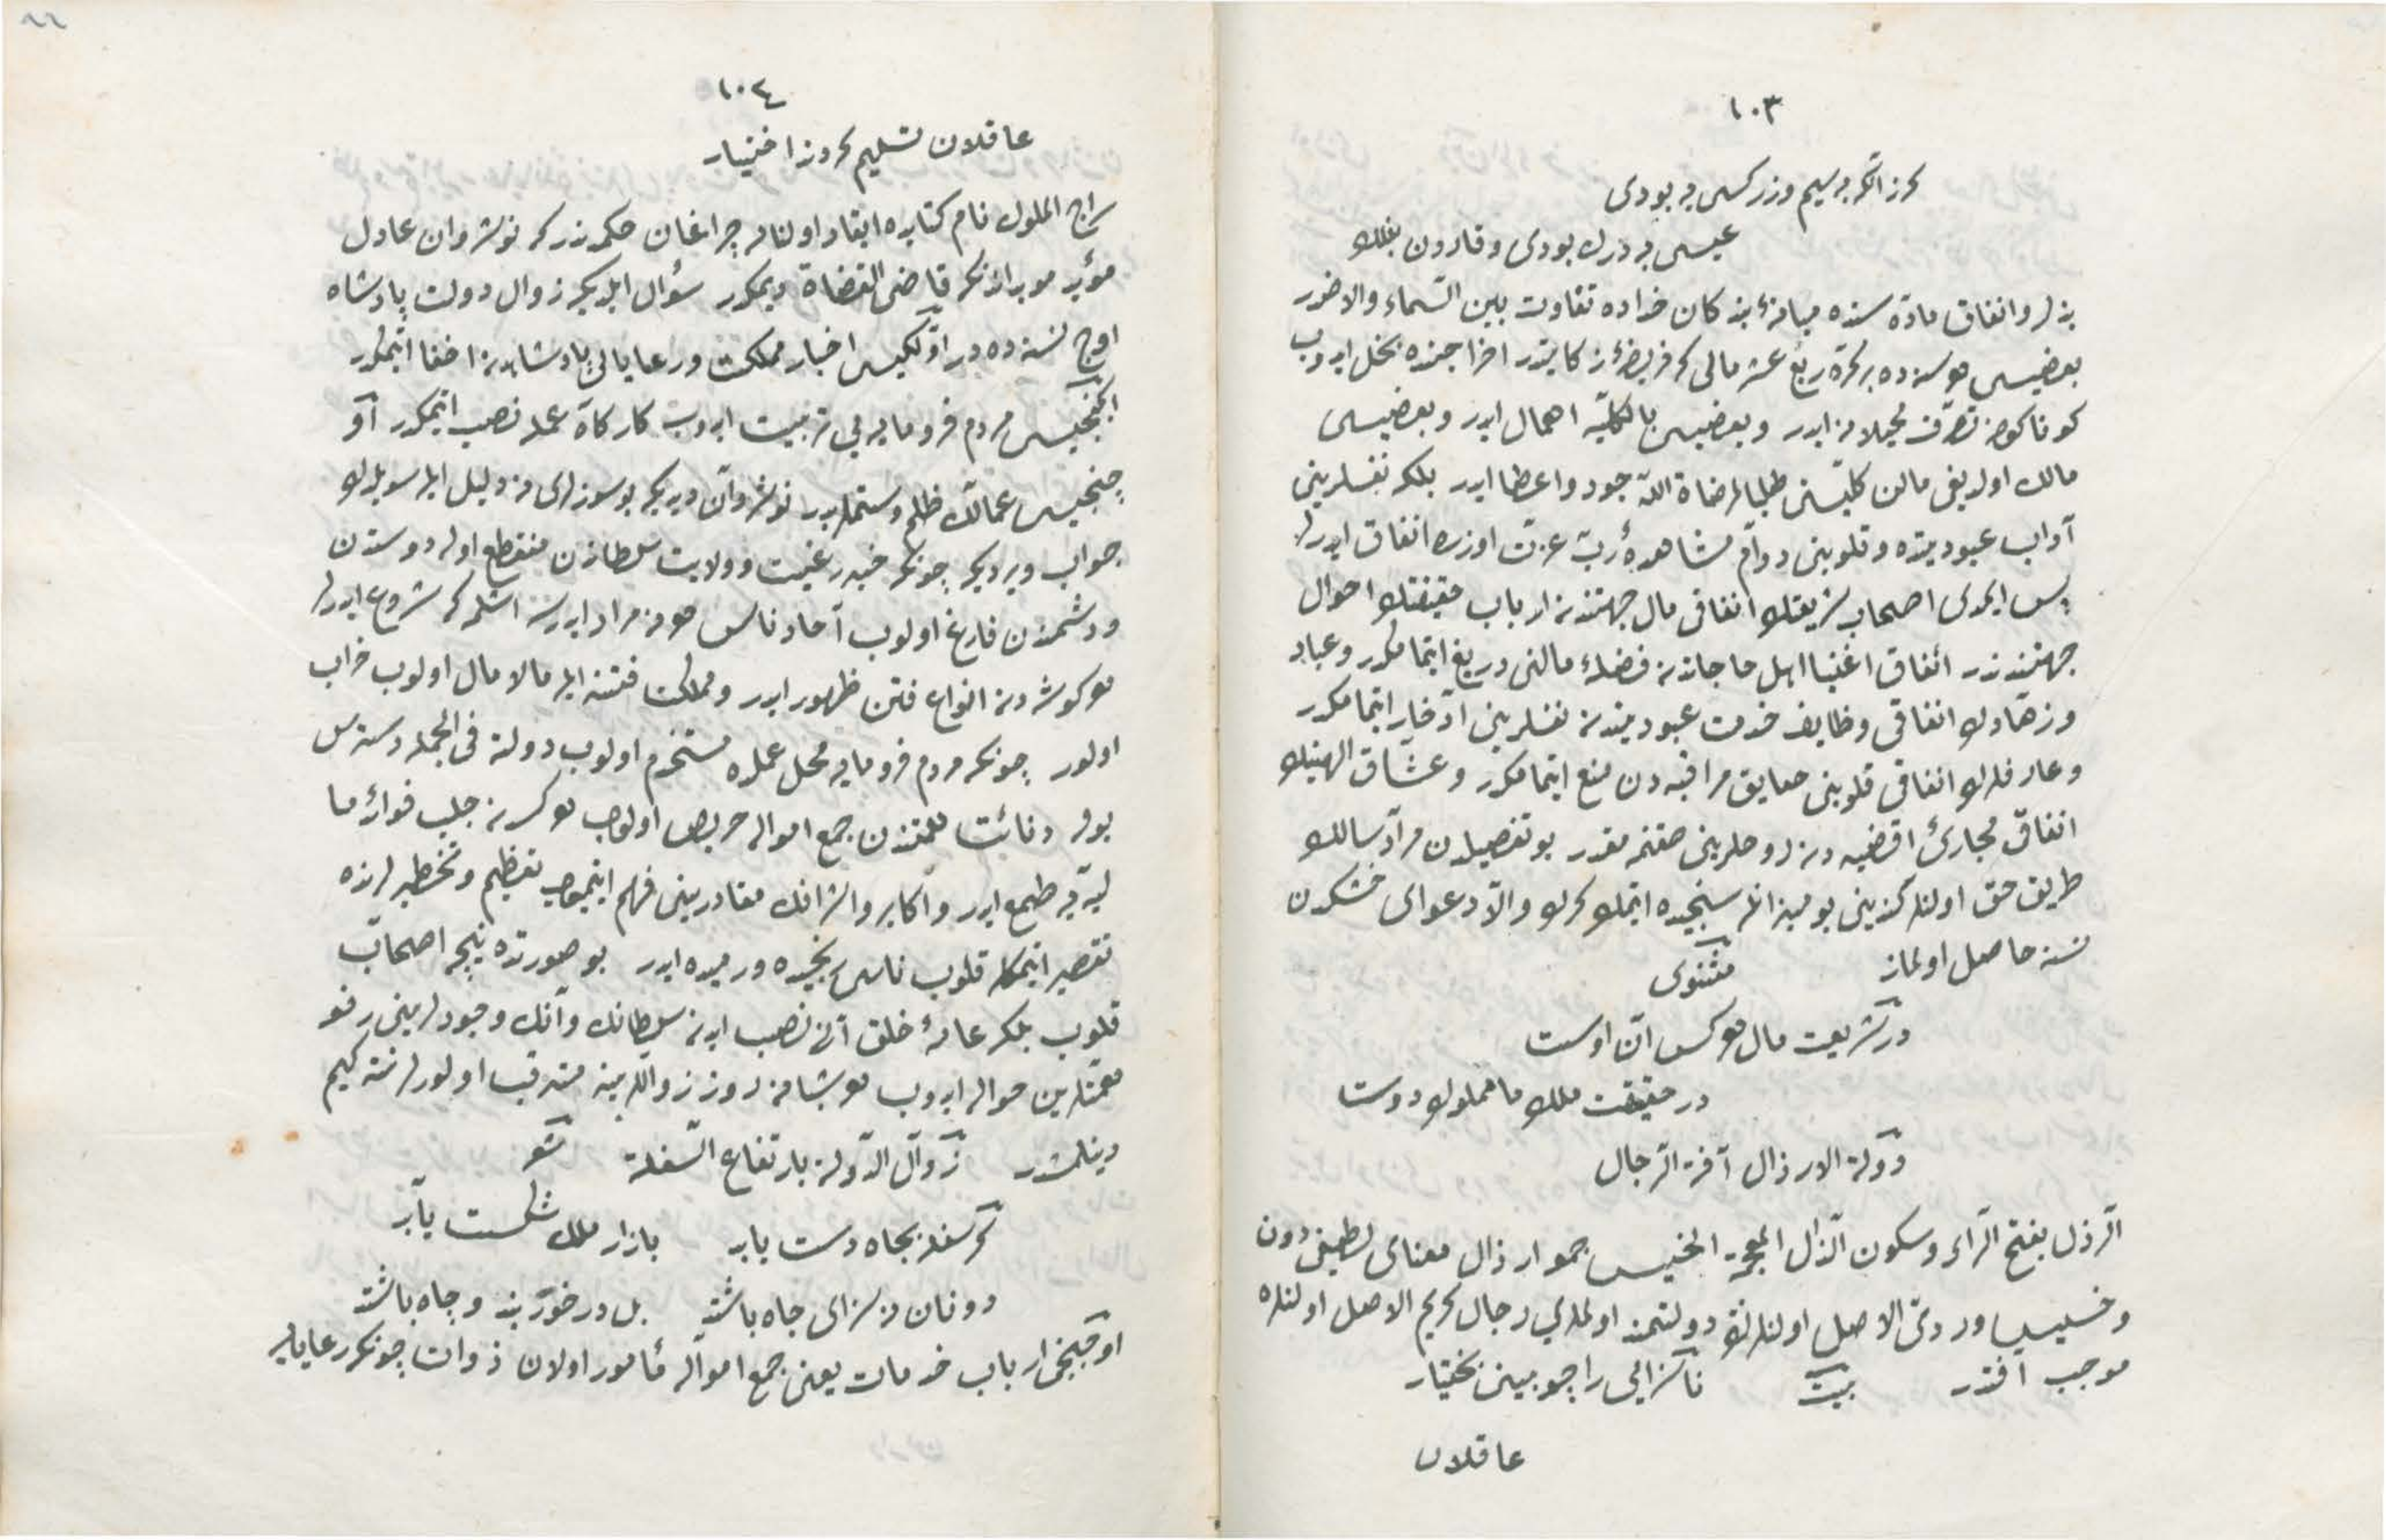 ١٠٣
کرنه اکر بسیم وزر کسی به بودی
عیسی به درك بودی وقارون بفلك
بذل وانفاق مادۀ سنده میانۀ بندکان خداده تفاوت بین السماء والارضدر
بعضیسی هر سنه ده بر کره ربع عشر مالی که فریضۀ زکاتدر اخراجنده بخل ایدوب
کوناکون تصرف محیلانه ایدر وبعضیسی بالکلیه اهمال ایدر وبعضیسی
مالك اولدیغی مالن کلیتنی طلبا لمرضاة الله جود واعطا ایدر بلکه نفسلرینی
آداب عبودیتده وقلوبنی دوام مشاهدۀ رب عزت اوزره انفاق ایدرلر
پس ایمدی اصحاب شریعتك انفاقی مال جهتندنه ارباب حقیقتك احوال
جهتندندر انفاق اغنیا اهل حاجاتدنه فضلۀ مالنی دریغ ایتمامکدر وعباد
وزهادك انفاقی وظایف خدمت عبودیتدنه نفسلرینی ادخار ایتمامکدر
وعارفلرك انفاقی قلوبنی حقایق مراقبه دن منع ایتمامکدر وعشاق الهینك
انفاقی مجارئ اقضیه دنه روحلرینی بو تفصیلدن مراد سالك
طریق حق اولنلر کندینی بو میزانله سنجیده ایتمك کرك والا دعوای خشکدن
نسنه حاصل اولماز مثنوی
در شریعت مال هر کس آن اوست
در حقیقت ملك ما مملوك دوست
دولة الارذال آفة الرجال
الرذل بفتح الراء وسکون الذال المعجمة الخسیس جمعی ارذال معنای لطیفی دون
وخسیس وردئ الاصل اولنلرك دولتمند اولملری رجال کریم الاصل اولنلره
موجب آفتدر بیت ناسزایی را چو بینی بختیار
عاقلان
١٠٤
عاقلان تسلیم کردند اختیار
سراج الملوك نام کتابده ایقاد اولنان چراغان حکمدندر که نوشروان عادل
مؤبد موبدانه که قاضی القضاة دیمکدر سؤال ایلدیکه زوال دولت پادشاه
اوچ نسنه ده در اولکیسی اخبار مملکت ورعایایی پادشاهدنه اخفا ایتمکدر
ایکنجیسی مردم فرومایه یی تربیت ایدوب کارکاه عمله نصب ایتمکدر آو
چنجیسی عمالك ظلم وستملریدر نوشروان دیدیکه بو سوزلری نه دلیل ایله سویلرك
جواب ویردیکه چونکه خبر رعیت وولایت سلطاندن منقطع اوله دوستدن
ودشمندن فارغ اولوب آحاد ناس هر نه مراد ایدرسه اشلمکه شروع ایدرلر
هر کوشه دنه انواع فتن ظهور ایدر ومملکت فتنه ایله مالامال اولوب خراب
اولور چونکه مردم فرومایه محل عملده مستخدم اولوب دولته فی الجمله دسترس
بوله دنائت همتندن جمع امواله حریص اولوب هر کسدنه جلب فوائد ما
لیه یه طمع ایدر واکابر واشرافك مقادرینی فهم ایتمیوب تعظیم وتخطیرلرنده
تقصیر ایتمکله قلوب ناس رنجیده ورمیده ایدر بو صورتده نیچه اصحاب
قلوب بلکه عامۀ خلق آنی نصب ایدنه سلطانك وآنك وجودلرینی رفع
همتلرین حواله ایدوب هر شبانه روز زواللرینه مترقب اولورلر نته کیم
دینلمشدر زوال الدولة بارتفاع السفلة شعر
کر سفله بجاه دست یابد بازار ملك شکست یابد
دونان نه سزای جاه باشند بل درخور بند وچاه باشند
اوچنجی ارباب خدمات یعنی جمع امواله مأمور اولان ذوات چونکه رعایایه